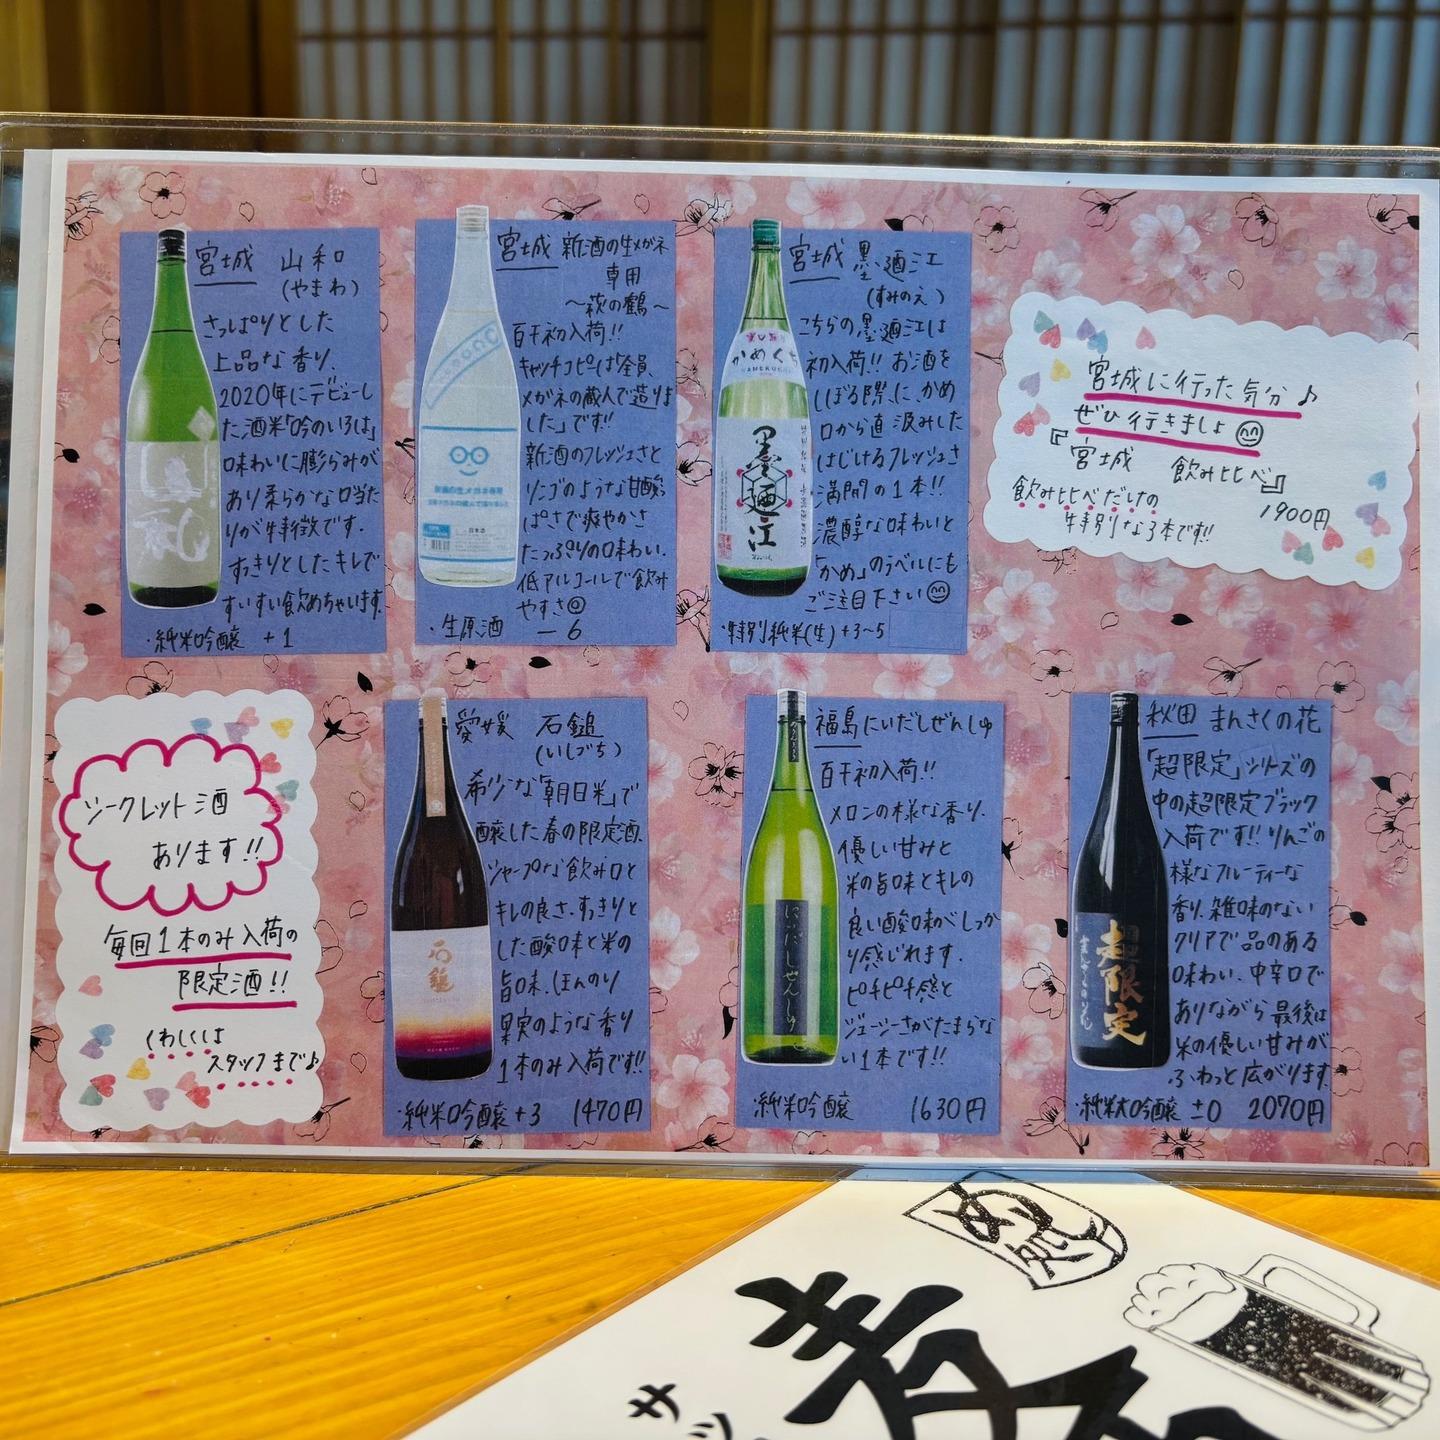 宮城 山和
(やまわ)
さっぱりとした
上品な香り.
2020年にデビューし
た酒米「吟のいろは」
味わいに膨らみが
あり柔らかな口当た
りが特徴です.
すっきりとしたキレで
すいすい飲めちゃいます.
・純米吟醸 +1
宮城 新酒の生メガネ
専用
〜萩の鶴〜
百干初入荷!!
キャッチコピーは「全員、
メガネの蔵人で造りま
した」です!!
新酒のフレッシュさと
リンゴのような甘酸っ
ぱさで爽やかさ
たっぷりの味わい.
低アルコールで飲み
やすさ◎
・生原酒 −6
宮城 墨廼江
(すみのえ)
こちらの墨廼江は
初入荷!! お酒を
しぼる際に、かめ
口から直汲みした
はじけるフレッシュさ
満開の1本!!
濃醇な味わいと
「かめ」のラベルにも
ご注目下さい
・特別純米(生) +3〜5
かめくち
KAMEKUCHI
墨廼江
宮城に行った気分♪
ぜひ行きましょ
『宮城 飲み比べ』
1900円
飲み比べだけの
特別な3本です!!
シークレット酒
あります!!
毎回1本のみ入荷の
限定酒!!
くわしくは
スタッフまで♪
愛媛 石鎚
(いしづち)
希少な「朝日米」で
醸した春の限定酒.
シャープな飲み口と
キレの良さ.すっきりと
した酸味と米の
旨味.ほんのり
果実のような香り
1本のみ入荷です!!
・純米吟醸 +3 1470円
石鎚
福島 にいだしぜんしゅ
百干初入荷!!
メロンの様な香り.
優しい甘みと
米の旨味とキレの
良い酸味がしっか
り感じれます.
ピチピチ感と
ジューシーさがたまらな
い1本です!!
・純米吟醸 1630円
にいだしぜんしゅ
秋田 まんさくの花
「超限定」シリーズの
中の超限定ブラック
入荷です!!りんごの
様なフルーティーな
香り.雑味のない
クリアで品のある
味わい.中辛口で
ありながら最後は
米の優しい甘みが
ふわっと広がります.
・純米大吟醸 ±0 2070円
超限定
まんさくの花